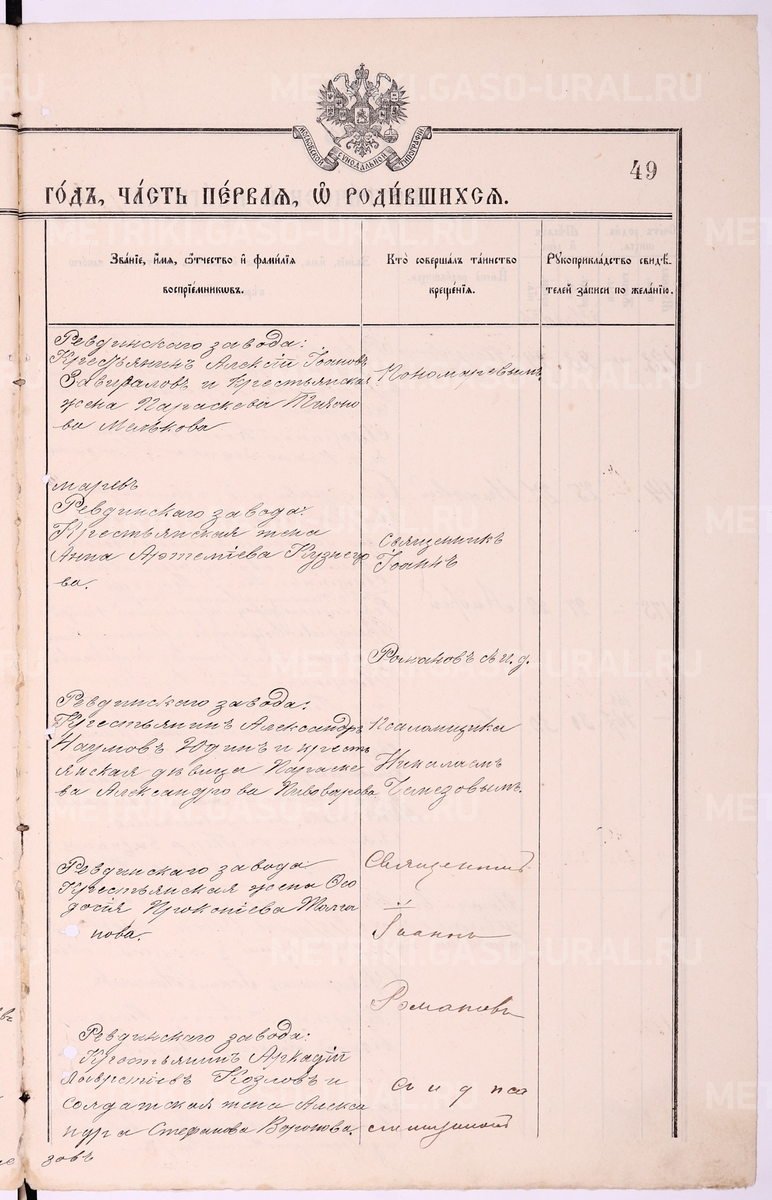 49
го́дъ, ча́сть пе́рвая, ѿ роди́вшихся.
Зва́ніе, и́мя, ѻ҆́тчество и҆ фами́лія
воспріе́мникѡвъ.
Кто̀ соверша́лъ та́инство
креще́нія.
Рꙋкоприкла́дство свидѣ́-
телей за́писи по жела́нію.
Ревдинскаго завода:
Крестьянинъ Алексій Іоановъ
Завираловъ и крестьянская
жена Параскева Тихоно
ва Малькова
Пономаревымъ
маревъ
Ревдинскаго завода:
Крестьянская жена
Анна Артеміева Кузнецо
ва.
Священникъ
Іоаннъ
Романовъ съ и. д.
Ревдинскаго завода:
Крестьянинъ Александръ
Наумовъ Юдинъ и кресть
янская дѣвица Параске
ва Александрова Пивоварова
Псаломщика
Николаемъ
Ревдинскаго завода
Крестьянская жена Ѳео
досія Прокопіева
нова.
Священникъ
Іоаннъ
Романовъ
Ревдинскаго завода:
Крестьянинъ Аркадій
Лаврентіевъ Козловъ и
солдатская жена Алекса
ндра Стефанова
с и д пса
зовъ
METRIKI.GASO-URAL.RU